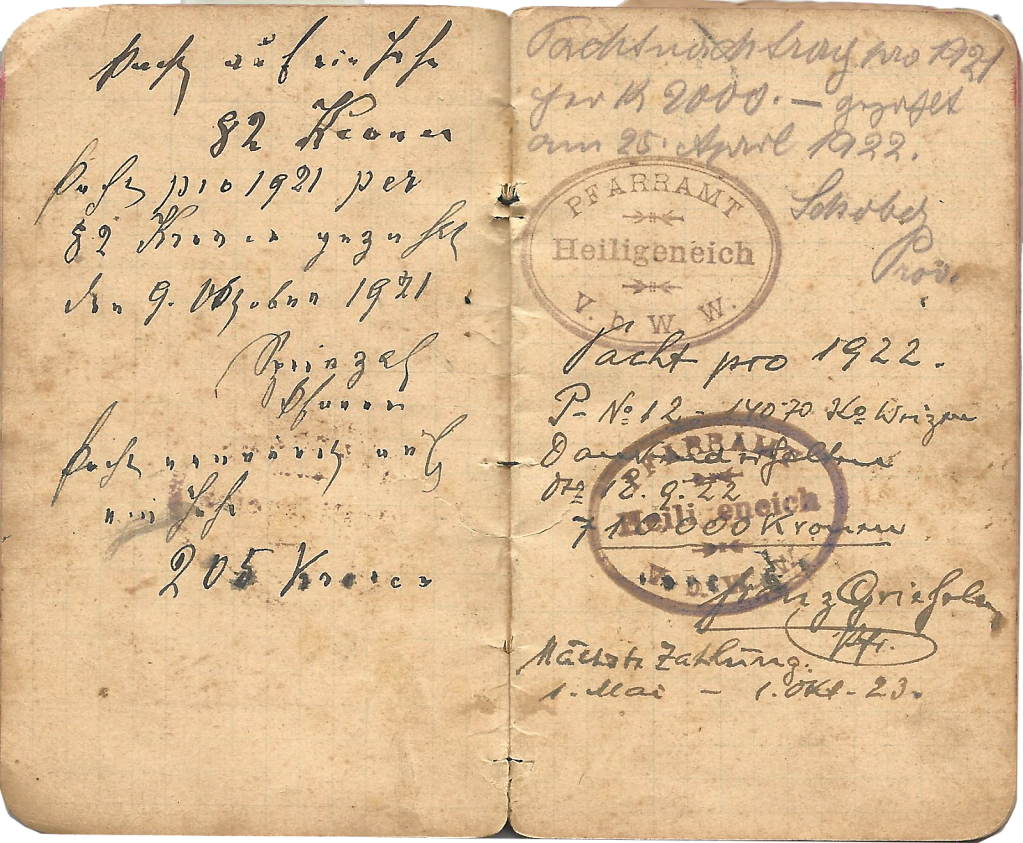 Pacht auf ein Jahr
82 Kronen
Pacht pro 1921 per
82 Kronen gezahlt
den 9. Oktober 1921
Prinzal
Pfarrer
Pacht auf
ein Jahr
205 Kronen
Pachtnachtrag pro 1921
per K 2000.— gezahlt
am 25. April 1922.
Prov.
PFARRAMT
Heiligeneich
V. b. W. W.
Pacht pro 1922.
P. No 12 - 140·70 Kg Weizen
Dankend erhalten
18. 9. 22
Kronen
PFARRAMT
Heiligeneich
Franz
Pfr.
Nächste Zahlung.
1. Mai — 1. Okt. 23.